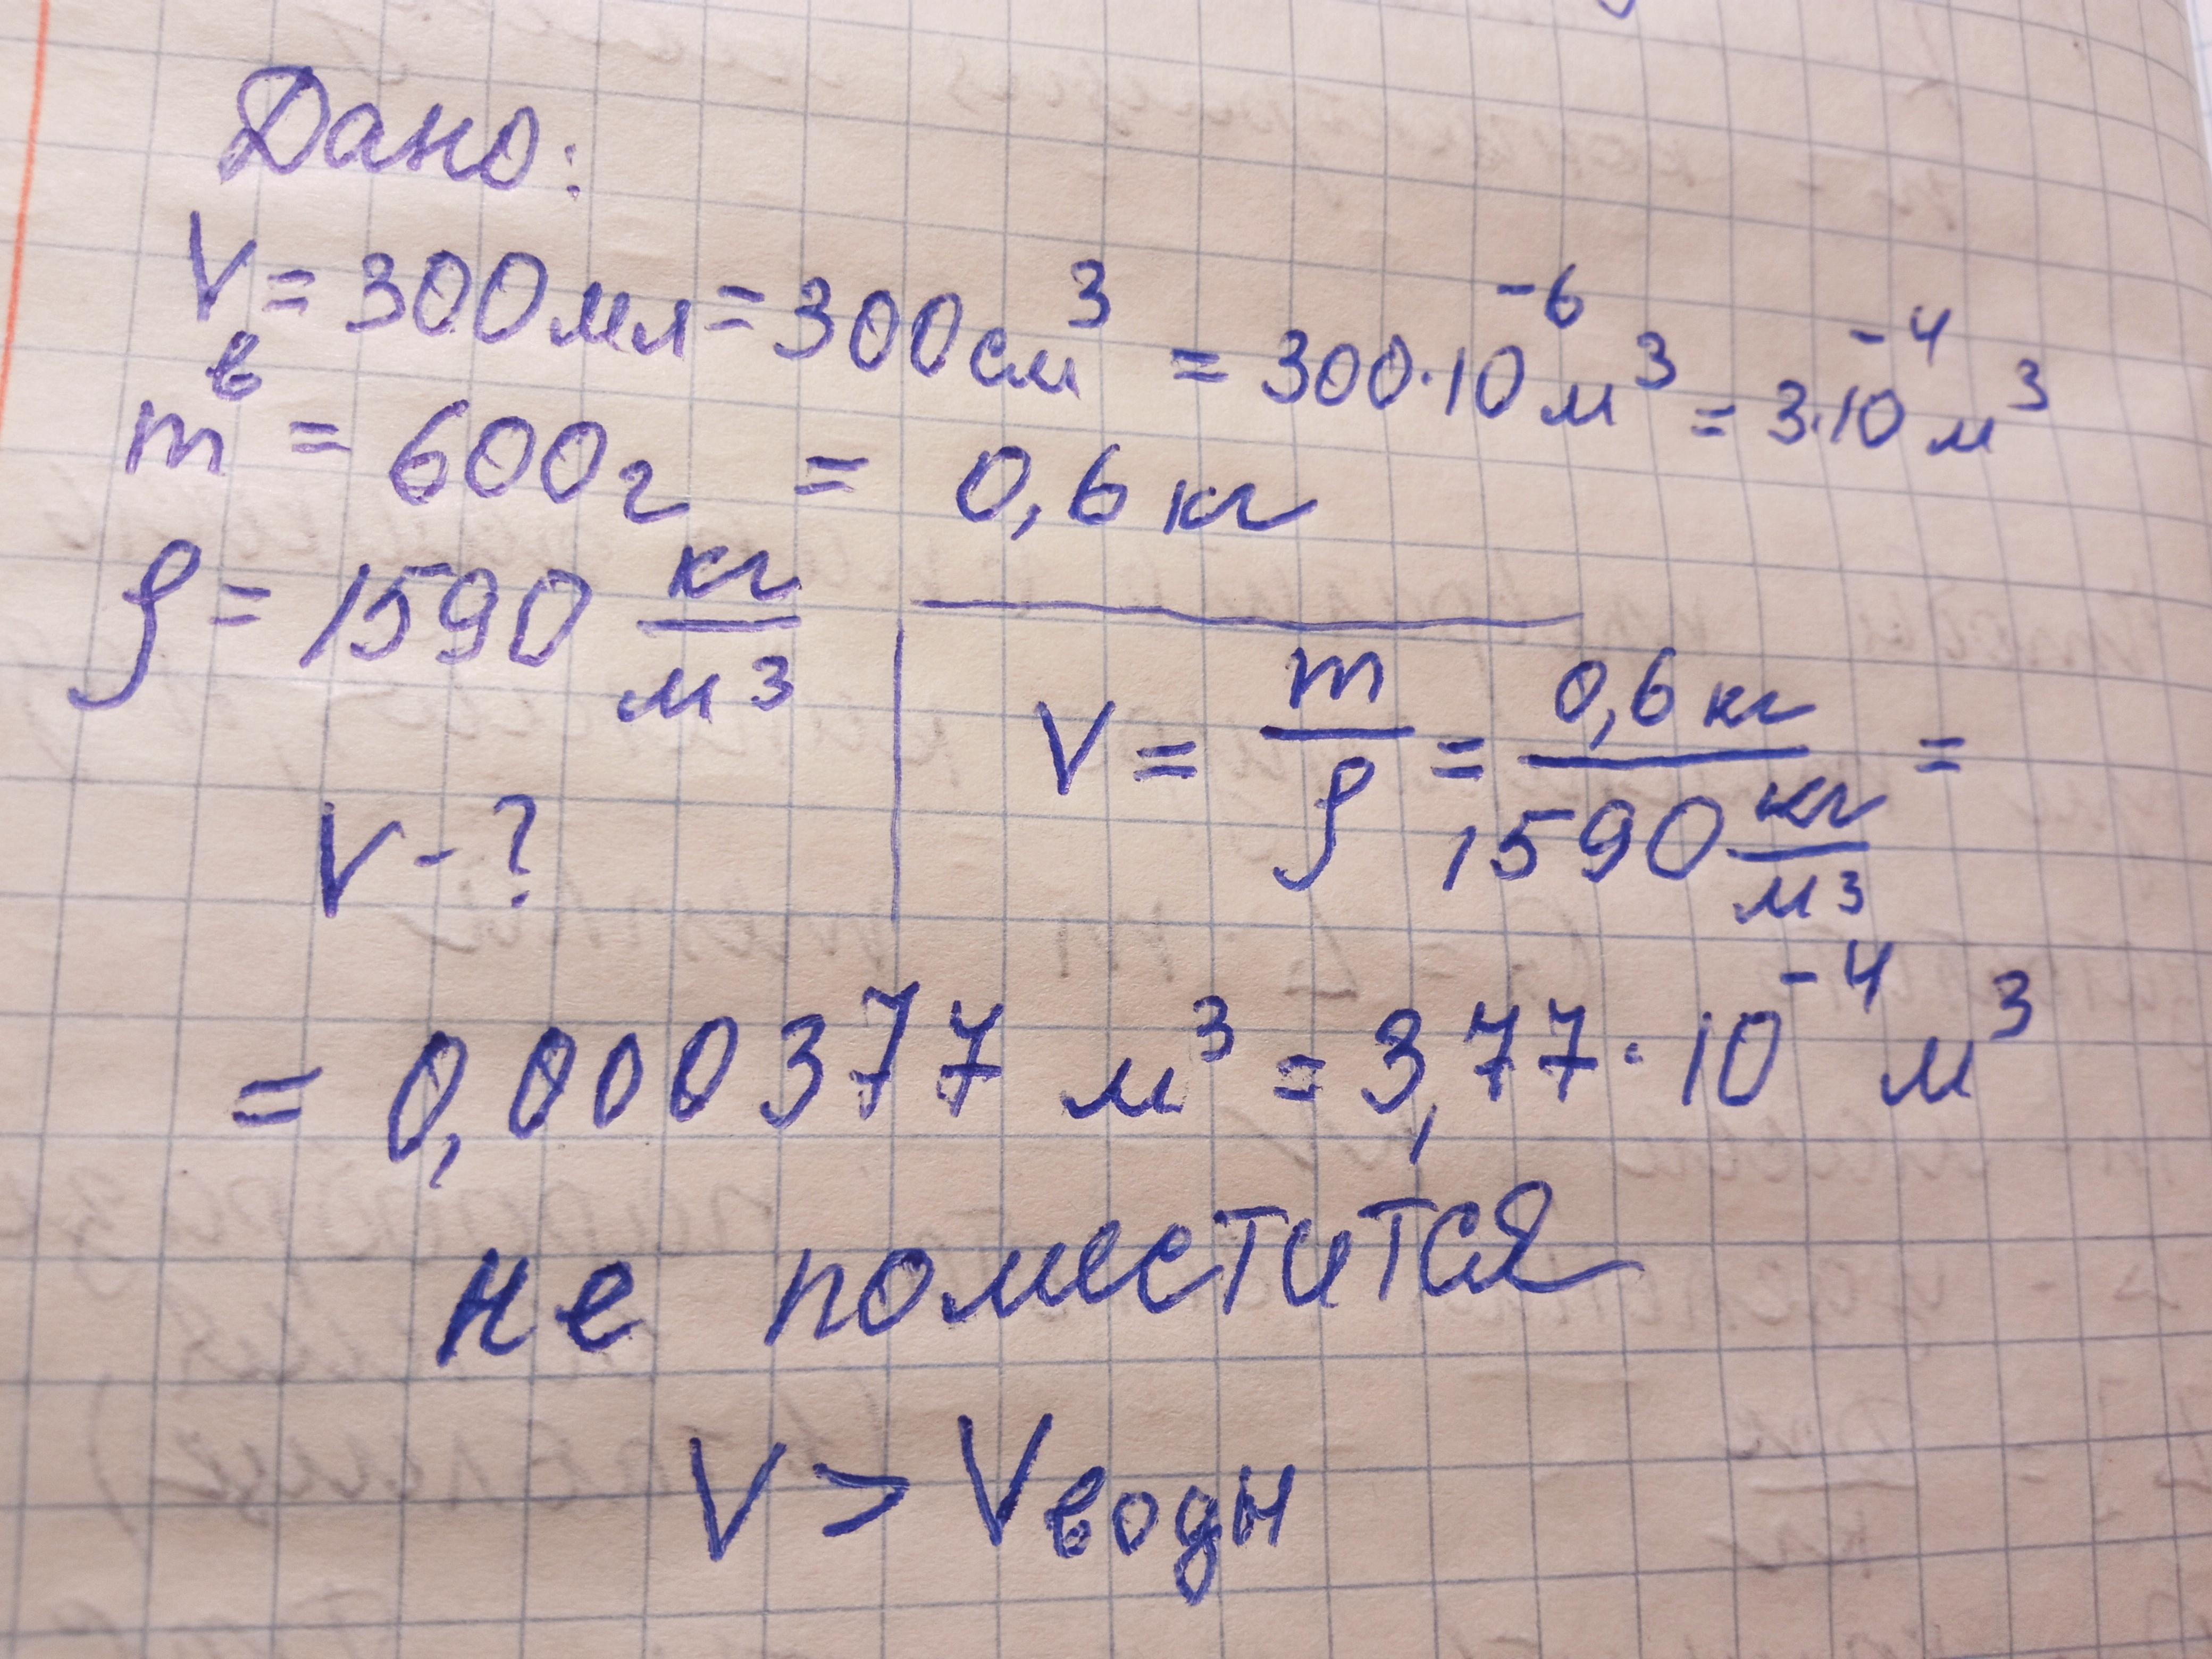 Дано:
Vв = 300мл = 300см³ = 300·10⁻⁶ м³ = 3·10⁻⁴ м³
m = 600г = 0,6 кг
ρ = 1590 кг/м³
V - ?
V = m/ρ = 0,6 кг / 1590 кг/м³ =
= 0,000377 м³ = 3,77·10⁻⁴ м³
не поместится
V > Vводн